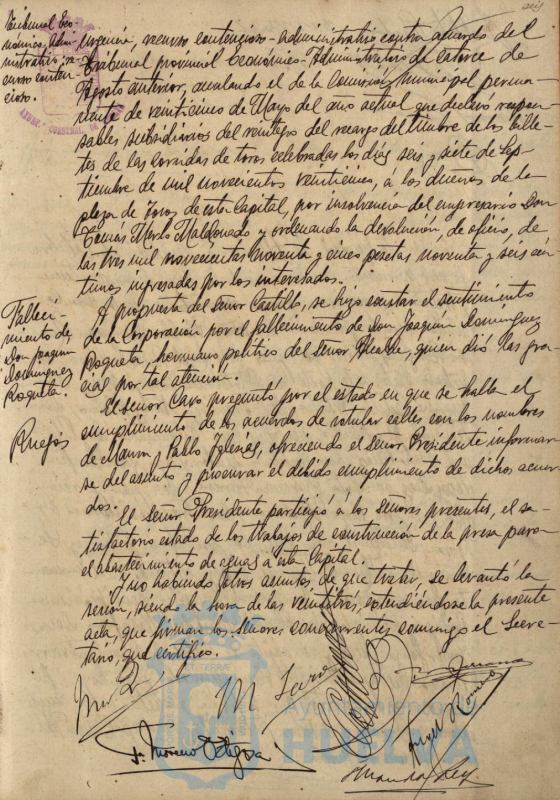 Tribunal Eco-
nómico Admi-
nistrativo, re-
curso conten-
cioso.
urgencia, recurso contencioso-administrativo contra acuerdo del
Tribunal provincial Económico-Administrativo de catorce de
Agosto anterior, anulando el de la Comisión Municipal perma-
nente de veinticinco de Mayo del año actual que declaró respon-
sables subsidiarios del reintegro del recargo del timbre de los bille-
tes de las corridas de toros celebradas los días seis y siete de Sep-
tiembre de mil novecientos veinticinco, á los dueños de la
plaza de Toros de esta Capital, por insolvencia del empresario Don
Tomás Merlo Maldonado y ordenando la devolución, de oficio, de
las tres mil novecientas noventa y cinco pesetas noventa y seis cén-
timos ingresadas por los interesados.
Falleci-
miento de
Don Joaquín
Domínguez
Roqueta.
A propuesta del Señor Castillo, se hizo constar el sentimiento
de la Corporación por el fallecimiento de Don Joaquín Domínguez
Roqueta, hermano político del Señor Alcalde, quien dió las gra-
cias por tal atención.
Ruegos
El Señor Caro preguntó por el estado en que se halla el
cumplimiento de los acuerdos de rotular calles con los nombres
de Maura y Pablo Iglesias, ofreciendo el Señor Presidente informar-
se del asunto y procurar el debido cumplimiento de dichos acuer-
dos.
El Señor Presidente participó á los Señores presentes, el sa-
tisfactorio estado de los trabajos de construcción de la presa para
el abastecimiento de aguas á esta Capital.
Y no habiendo otros asuntos de que tratar, se levantó la
sesión, siendo la hora de las veintitrés, extendiéndose la presente
acta, que firman los señores concurrentes conmigo el Secre-
tario, que certifico.
F. Moreno Ortega
Angel Romero
Ayuntamiento
HUELVA